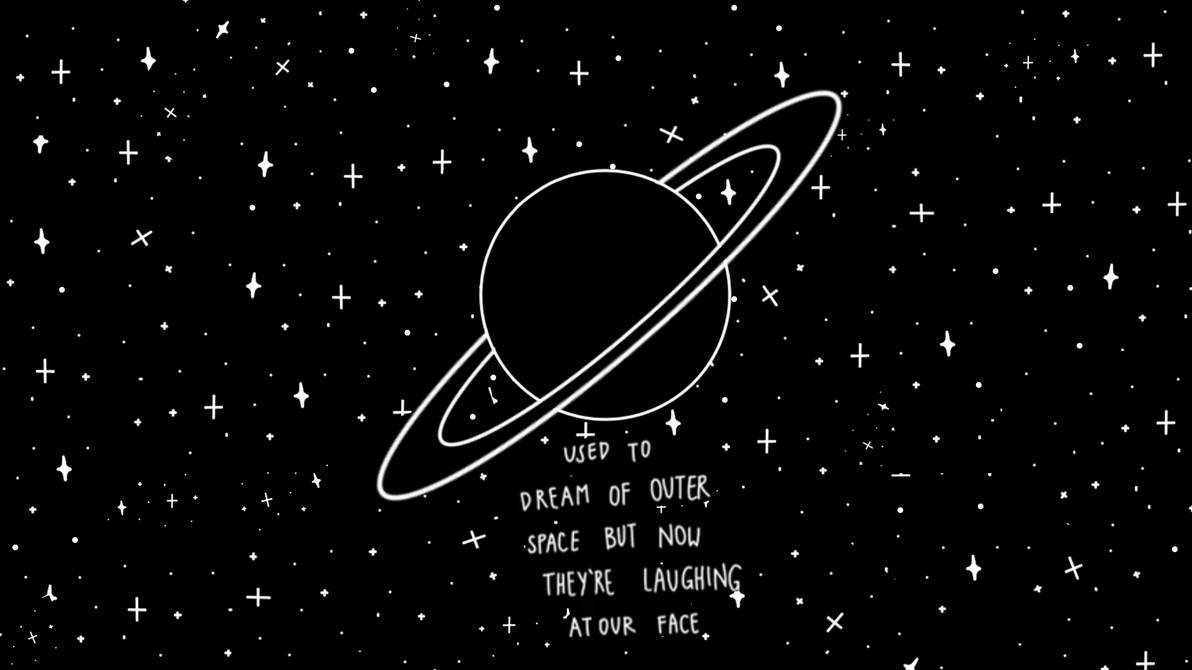 USED TO
DREAM OF OUTER
SPACE BUT NOW
THEY'RE LAUGHING
AT OUR FACE